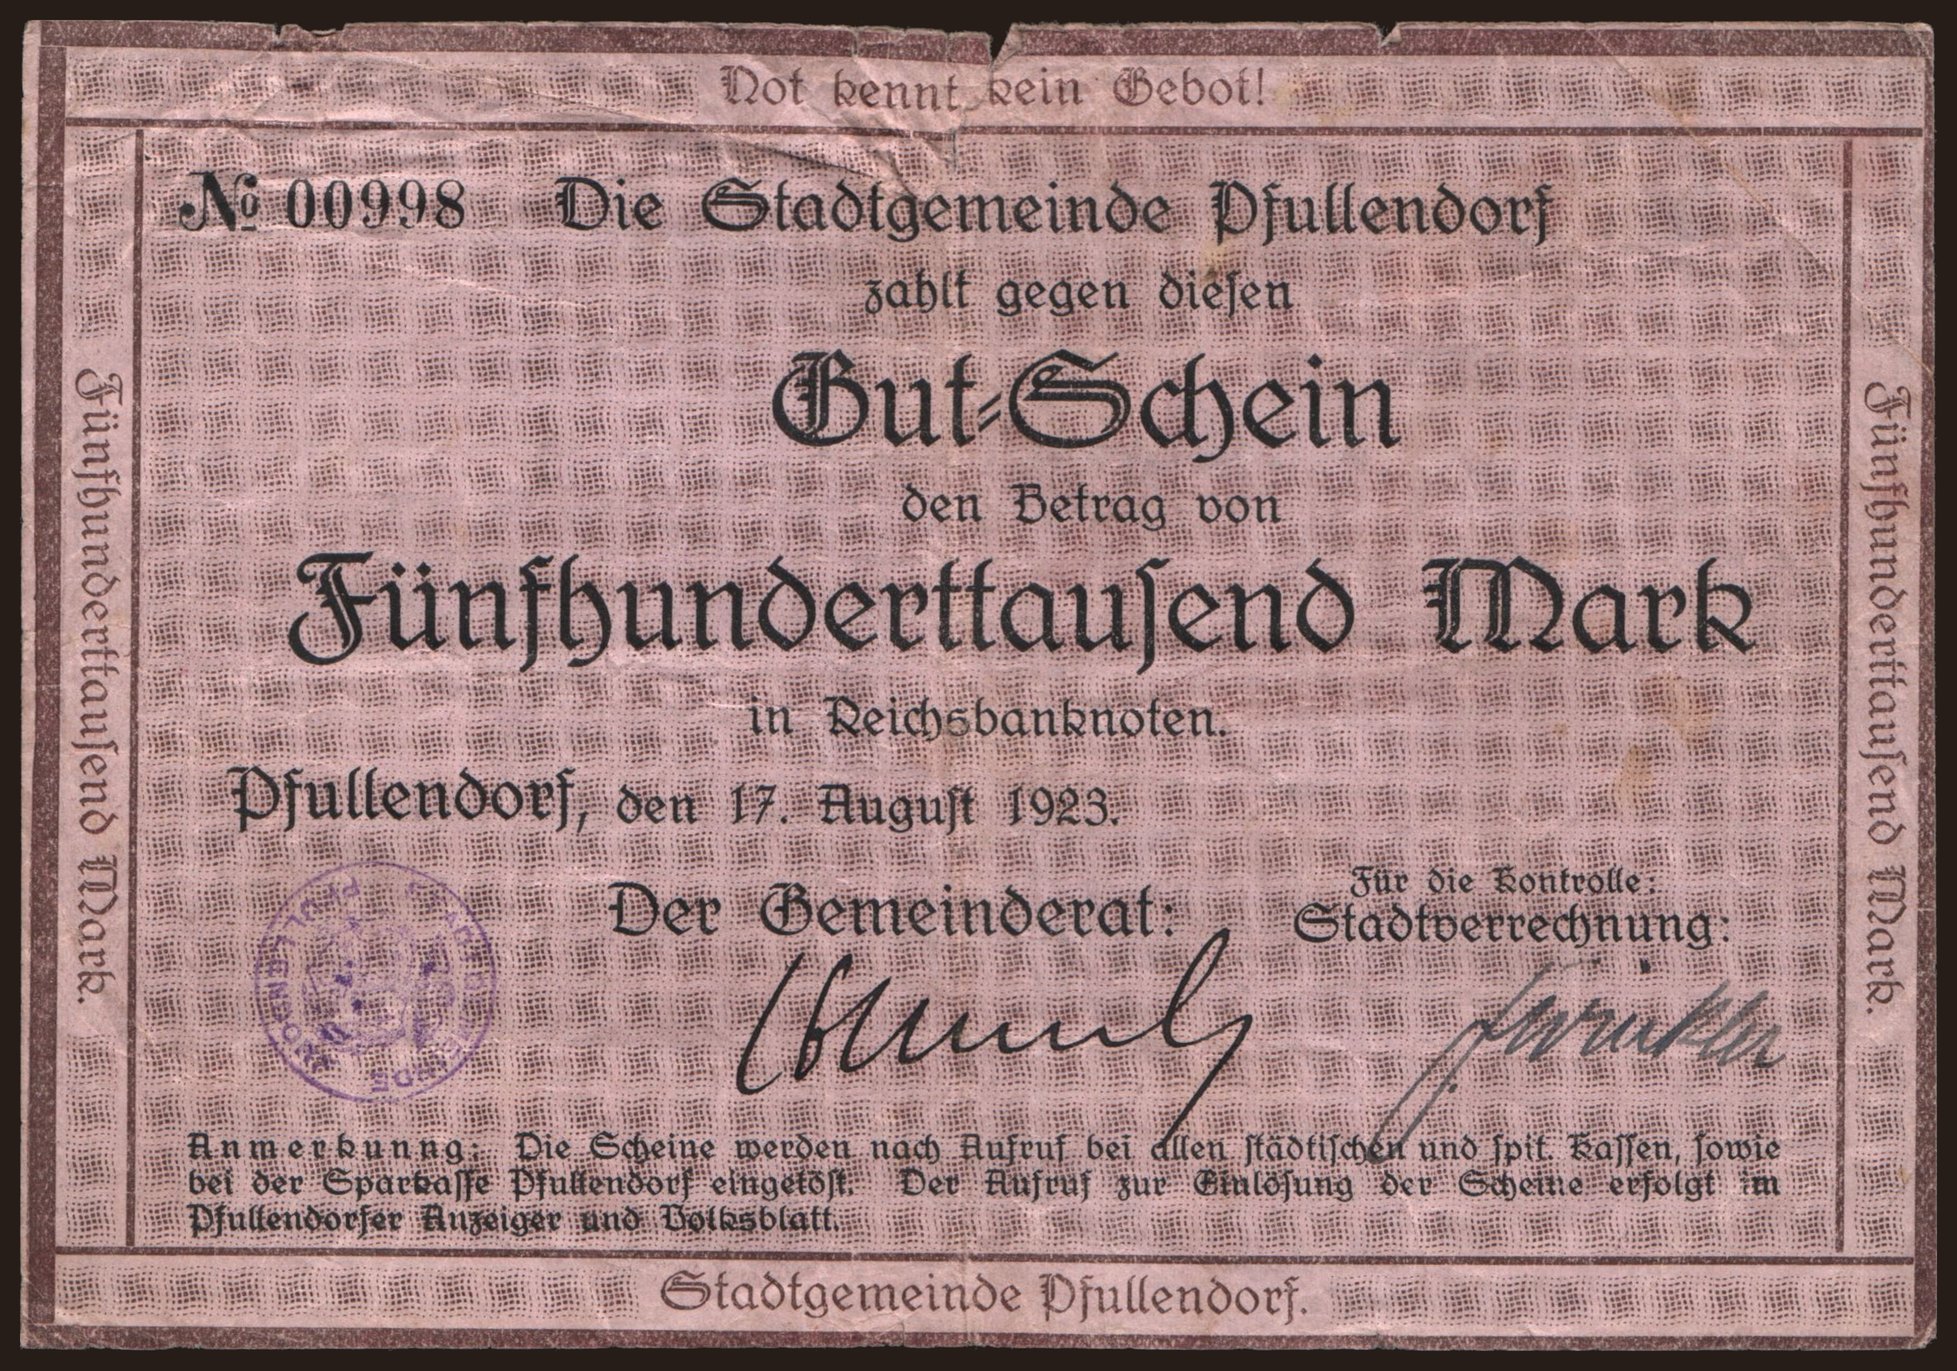 Not kennt kein Gebot!
№ 00998 Die Stadtgemeinde Pfullendorf
zahlt gegen diesen
Gut-Schein
den Betrag von
Fünfhunderttausend Mark
in Reichsbanknoten.
Pfullendorf, den 17. August 1923.
Der Gemeinderat:
Für die Kontrolle:
Stadtverrechnung:
Anmerkunng: Die Scheine werden nach Aufruf bei allen städtischen und spit. Kassen, sowie
bei der Sparkasse Pfullendorf eingelöst. Der Aufruf zur Einlösung der Scheine erfolgt im
Pfullendorfer Anzeiger und Volksblatt.
Stadtgemeinde Pfullendorf.
Fünfhunderttausend Mark.
Fünfhunderttausend Mark.
STADTGEMEINDE PFULLENDORF